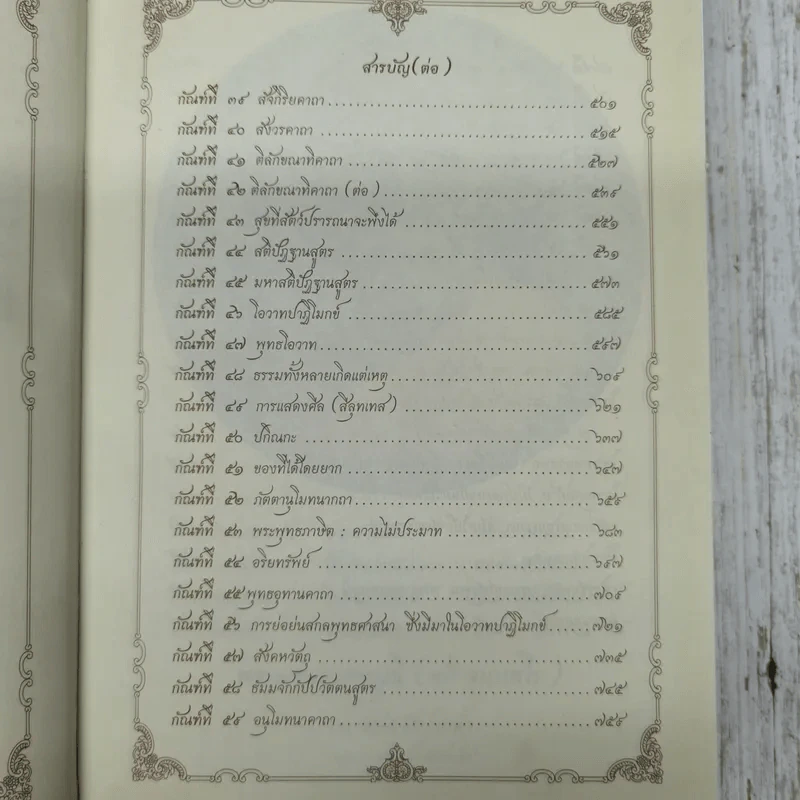 สารบัญ(ต่อ)
กัณฑ์ที่ ๓๙ สัจกิริยคาถา ๕๐๑
กัณฑ์ที่ ๔๐ สังวรคาถา ๕๑๕
กัณฑ์ที่ ๔๑ ติลักขณาทิคาถา ๕๒๗
กัณฑ์ที่ ๔๒ ติลักขณาทิคาถา (ต่อ) ๕๓๙
กัณฑ์ที่ ๔๓ สุขที่สัตว์ปรารถนาจะพึงได้ ๕๕๑
กัณฑ์ที่ ๔๔ สติปัฏฐานสูตร ๕๖๑
กัณฑ์ที่ ๔๕ มหาสติปัฏฐานสูตร ๕๗๓
กัณฑ์ที่ ๔๖ โอวาทปาฏิโมกข์ ๕๘๕
กัณฑ์ที่ ๔๗ พุทธโอวาท ๕๙๗
กัณฑ์ที่ ๔๘ ธรรมทั้งหลายเกิดแต่เหตุ ๖๐๙
กัณฑ์ที่ ๔๙ การแสดงศีล (สีลุทเทส) ๖๒๑
กัณฑ์ที่ ๕๐ ปกิณกะ ๖๓๗
กัณฑ์ที่ ๕๑ ของที่ได้โดยยาก ๖๔๗
กัณฑ์ที่ ๕๒ ภัตตานุโมทนากถา ๖๕๙
กัณฑ์ที่ ๕๓ พระพุทธภาษิต : ความไม่ประมาท ๖๘๓
กัณฑ์ที่ ๕๔ อริยทรัพย์ ๖๙๗
กัณฑ์ที่ ๕๕ พุทธอุทานคาถา ๗๐๙
กัณฑ์ที่ ๕๖ การย่อย่นสกลพุทธศาสนา ซึ่งมีมาในโอวาทปาฏิโมกข์ ๗๒๑
กัณฑ์ที่ ๕๗ สังคหวัตถุ ๗๓๕
กัณฑ์ที่ ๕๘ ธัมมจักกัปปวัตตนสูตร ๗๔๕
กัณฑ์ที่ ๕๙ อนุโมทนาคาถา ๗๕๙